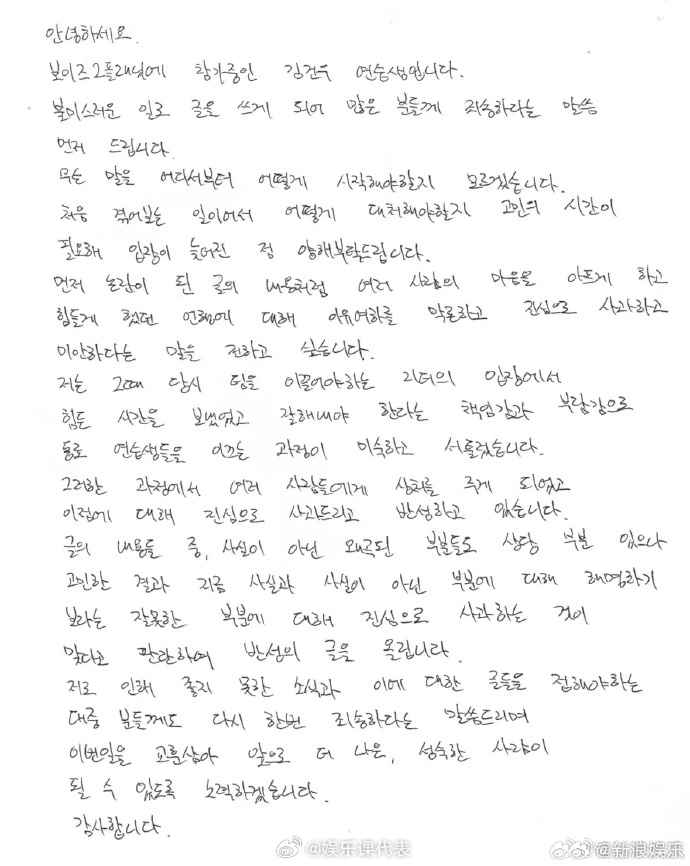 안녕하세요.
보이즈2플래닛에 참가중인 김건우 연습생입니다.
불미스러운 일로 글을 쓰게 되어 많은 분들께 죄송하다는 말씀
먼저 드립니다.
무슨 말을 어디서부터 어떻게 시작해야할지 모르겠습니다.
처음 겪어보는 일이어서 어떻게 대처해야할지 고민의 시간이
필요해 입장이 늦어진 점 양해부탁드립니다.
먼저 논란이 된 글의 내용처럼 여러 사람의 마음을 아프게 하고
힘들게 했던 언행에 대해 이유여하를 막론하고 진심으로 사과하고
미안하다는 말을 전하고 싶습니다.
저는 그때 당시 팀을 이끌어야하는 리더의 입장에서
힘든 시간을 보냈었고 잘해내야 한다는 책임감과 부담감으로
동료 연습생들을 이끄는 과정이 미숙하고 서툴렀습니다.
그러한 과정에서 여러 사람들에게 상처를 주게 되었고
이점에 대해 진심으로 사과드리고 반성하고 있습니다.
글의 내용들 중, 사실이 아닌 왜곡된 부분들도 상당 부분 있으나
고민한 결과 지금 사실과 사실이 아닌 부분에 대해 해명하기
보다는 잘못한 부분에 대해 진심으로 사과하는 것이
맞다고 판단하여 반성의 글을 올립니다.
저로 인해 좋지 못한 소식과 이에 대한 글들을 접해야하는
대중 분들께도 다시 한번 죄송하다는 말씀드리며
이번일을 교훈삼아 앞으로 더 나은, 성숙한 사람이
될 수 있도록 노력하겠습니다.
감사합니다.
@娱乐课代表
@新浪娱乐